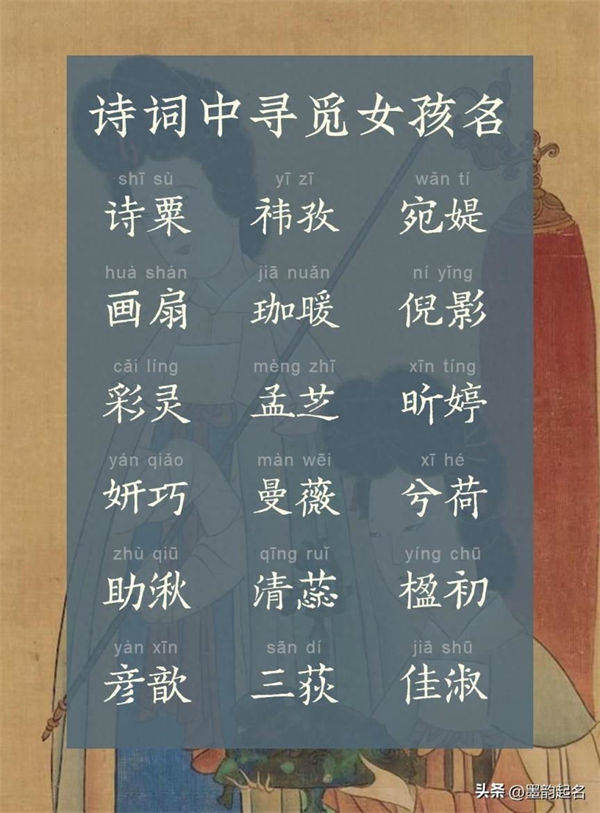 诗词中寻觅女孩名
shī sù yī zī wān tí
诗粟 祎孜 宛媞
huà shàn jiā nuǎn ní yǐng
画扇 珈暖 倪影
cǎi líng mèng zhī xīn tíng
彩灵 孟芝 昕婷
yán qiǎo màn wēi xī hé
妍巧 曼薇 兮荷
zhù qiū qīng ruǐ yíng chū
助湫 清蕊 楹初
yàn xīn sān dí jiā shū
彦歆 三荻 佳淑
头条 @墨韵起名